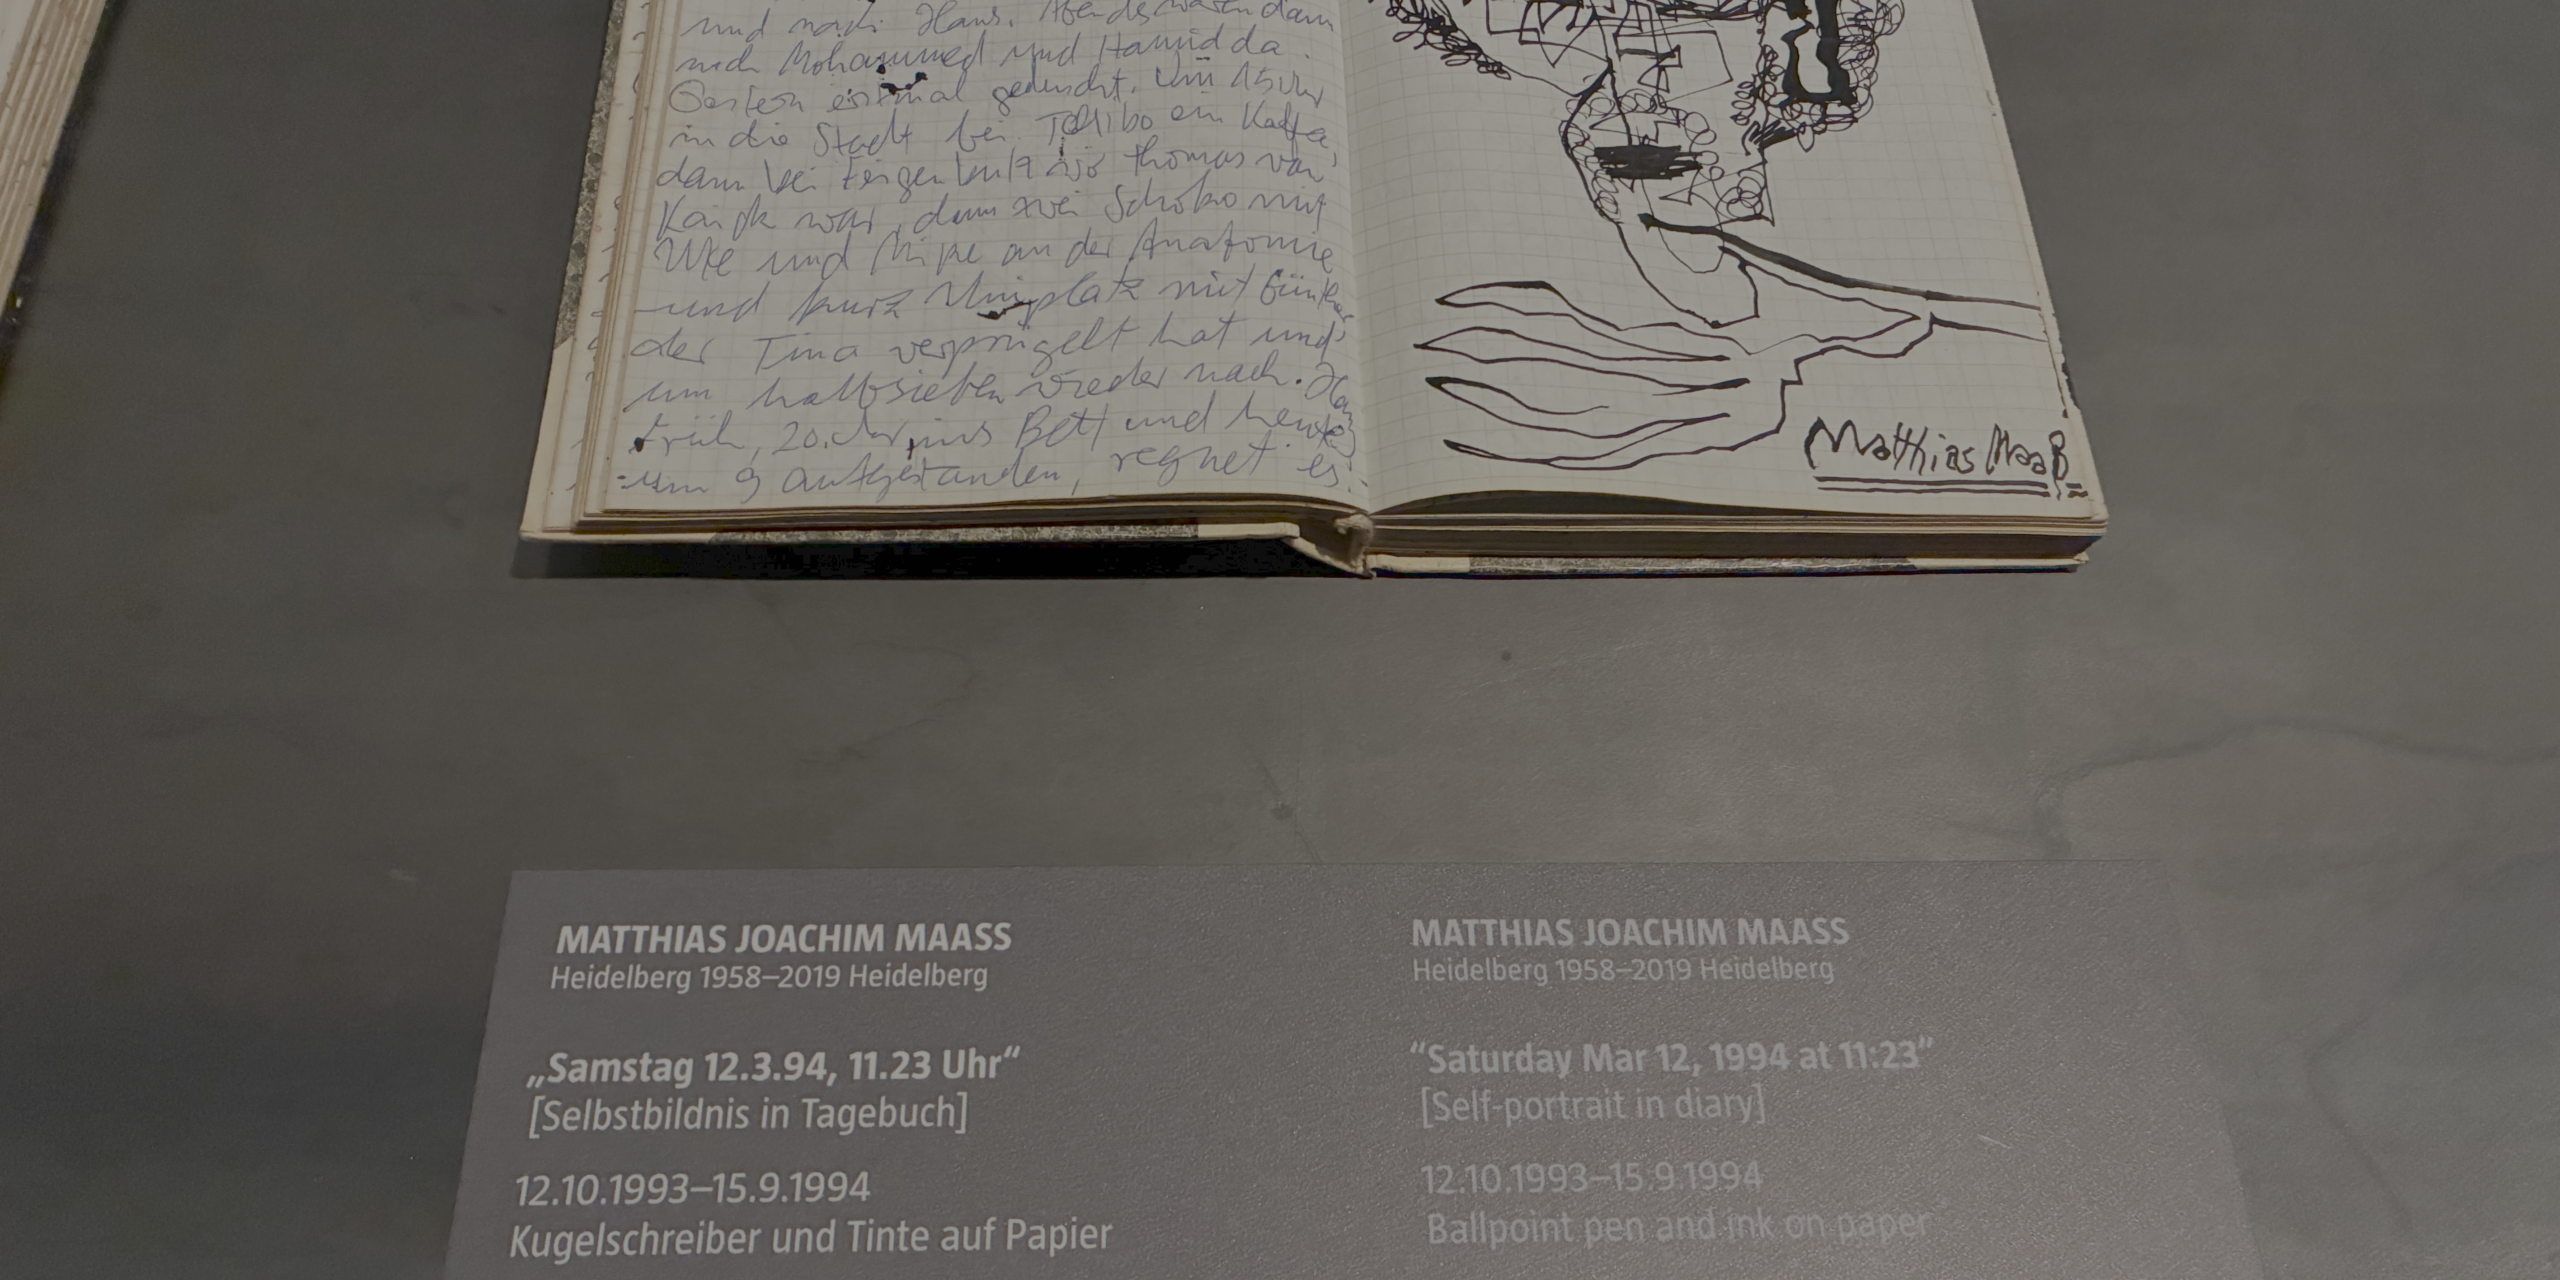 und nach Haus. Abends waren dann
noch Mohammed und Hamid da.
Gestern erstmal geduscht. Um 15 Uhr
in die Stadt bei Tchibo ein Kaffee,
dann bei wo Thomas von
war, dann zwei Schoko mit
Uke und an der Anatomie
und kurz Uniplatz mit Günther
der Tina verprügelt hat und
um halbsieben wieder nach. Haus
früh, 20.Uhr, ins Bett und heute
um 9 aufgestanden, regnet es.
Matthias Maaß
MATTHIAS JOACHIM MAASS
Heidelberg 1958–2019 Heidelberg
„Samstag 12.3.94, 11.23 Uhr“
[Selbstbildnis in Tagebuch]
12.10.1993–15.9.1994
Kugelschreiber und Tinte auf Papier
MATTHIAS JOACHIM MAASS
Heidelberg 1958–2019 Heidelberg
“Saturday Mar 12, 1994 at 11:23”
[Self-portrait in diary]
12.10.1993–15.9.1994
Ballpoint pen and ink on paper